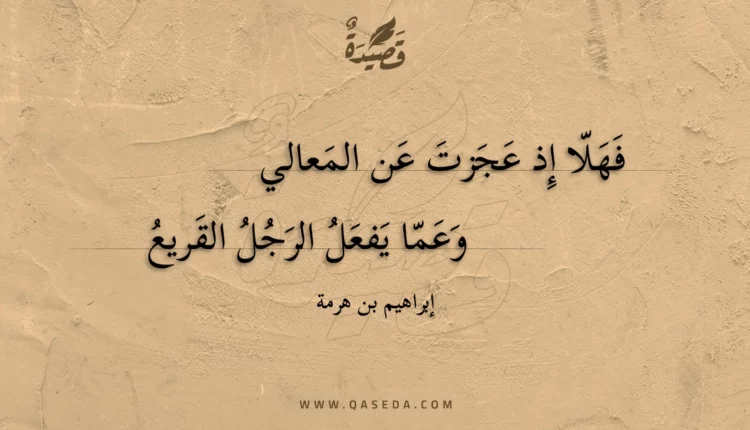 قَصِيْدَةٌ
فَهَلّا إِذ عَجَزتَ عَن المَعالي
وَعَمّا يَفعَلُ الرَجُلُ القَريعُ
إبراهيم بن هرمة
WWW.QASEDA.COM